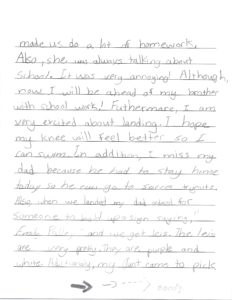 made us do a lot of homework.
Also, she was always talking about
School. It was very annoying! Although,
now I will be ahead of my brother
with school work! Futhermore, I am
very excited about landing. I hope
my knee will feel better so I
can swim. In addition, I miss my
dad because he had to stay home
today so he can go to soccer tryouts.
Also when we landed my dad asked for
someone to build up a sign saying,"
Family," and we got leis. The leis
are very pretty. They are purple and
white. Aditionaly, my came to pick